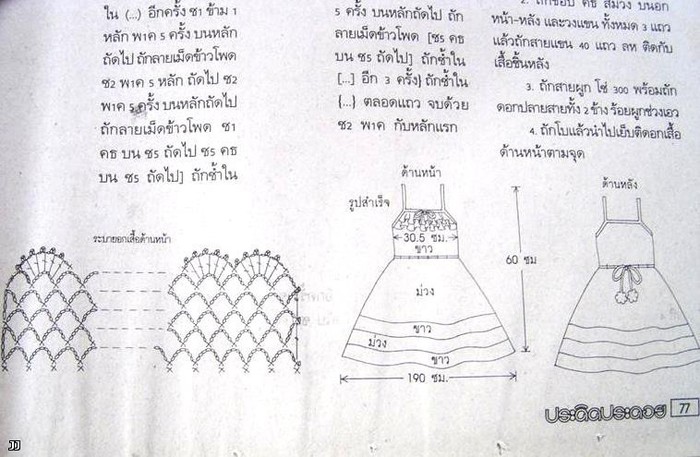 ใน (...) อีกครั้ง ซ1 ข้าม 1
หลัก พ1ค 5 ครั้ง บนหลัก
ถัดไป ถักลายเม็ดข้าวโพด
ซ2 พ1ค 5 หลัก ถัดไป ซ2
พ1ค 5 ครั้ง บนหลักถัดไป
ถักลายเม็ดข้าวโพด ซ1
คธ บน ซ5 ถัดไป ซ5 คธ
บน ซ5 ถัดไป] ถักซ้ำใน
5 ครั้ง บนหลักถัดไป ถัก
ลายเม็ดข้าวโพด [ซ5 คธ
บน ซ5 ถัดไป] ถักซ้ำใน
[...] อีก 3 ครั้ง} ถักซ้ำใน
{...} ตลอดแถว จบด้วย
ซ2 พ1ค กับหลักแรก
2. ถักขอบ คธ สีม่วง บนอก
หน้า-หลัง และวงแขน ทั้งหมด 3 แถว
แล้วถักสายแขน 40 แถว ลห ติดกับ
เสื้อชิ้นหลัง
3. ถักสายผูก โซ่ 300 พร้อมถัก
ดอกปลายสายทั้ง 2 ข้าง ร้อยผูกช่วงเอว
4. ถักโบแล้วนำไปเย็บติดอกเสื้อ
ด้านหน้าตามจุด
ระบายอกเสื้อด้านหน้า
รูปสำเร็จ
ด้านหน้า
30.5 ซม.
ขาว
ม่วง
ขาว
ม่วง
ขาว
190 ซม.
60 ซม
ด้านหลัง
ประดิดประดอย 77
JJ